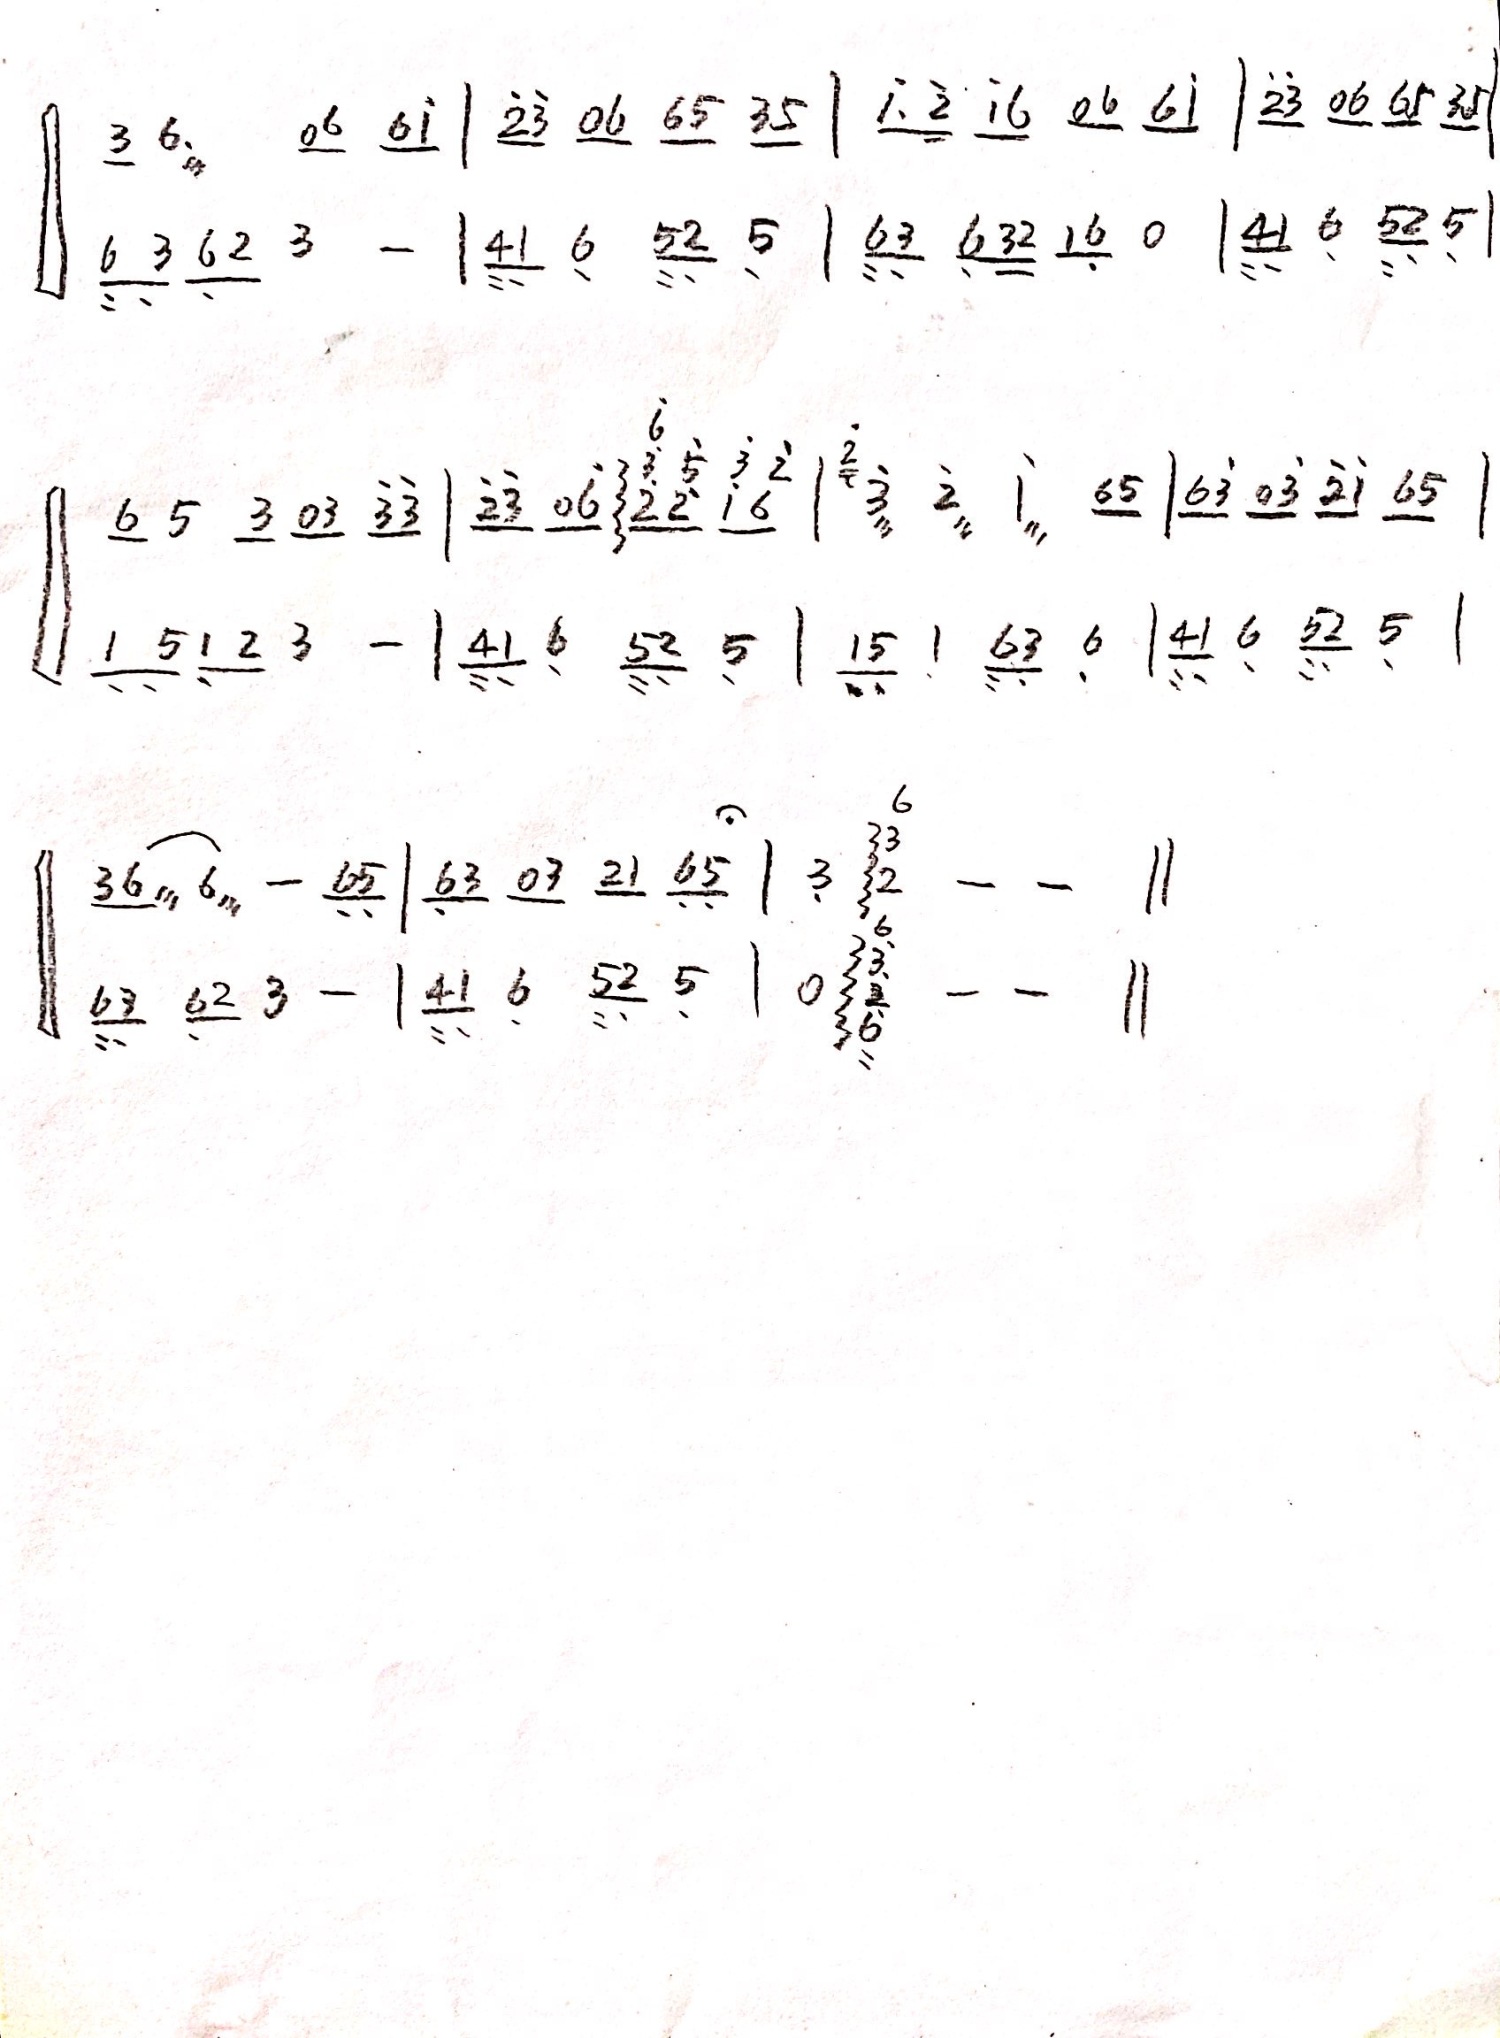 3 6. 06 61 | 23 06 65 35 | 1. 2 16 06 61 | 23 06 65 35 |
6 3 6 2 3 - | 41 6 52 5 | 63 632 16 0 | 41 6 52 5 |
6 5 3 03 33 | 23 06 22 16 | 3 2 1 65 | 63 03 21 65 |
1 5 1 2 3 - | 41 6 52 5 | 15 1 63 6 | 41 6 52 5 |
36 6 - 65 | 63 03 21 65 | 3 2 - - ||
63 62 3 - | 41 6 52 5 | 0 6 - - ||